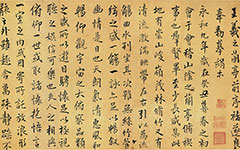 永和九年歲在癸丑暮春之初
會于會稽山陰之蘭亭脩禊
事也羣賢畢至少長咸集
地有崇山峻領茂林脩竹
清流激湍暎帶左右引以為流
觴曲水列坐其次雖無絲竹
絃之盛一觴一詠亦足以暢叙
幽情是日也天朗氣清惠風
暢仰觀宇宙之大俯察品
之盛所以遊目騁懷足以極視
之娛信可樂也夫人之相與
俯仰一世或取諸懷抱悟言
室之內或因寄所託放浪形
之外雖趣舍萬殊靜躁不